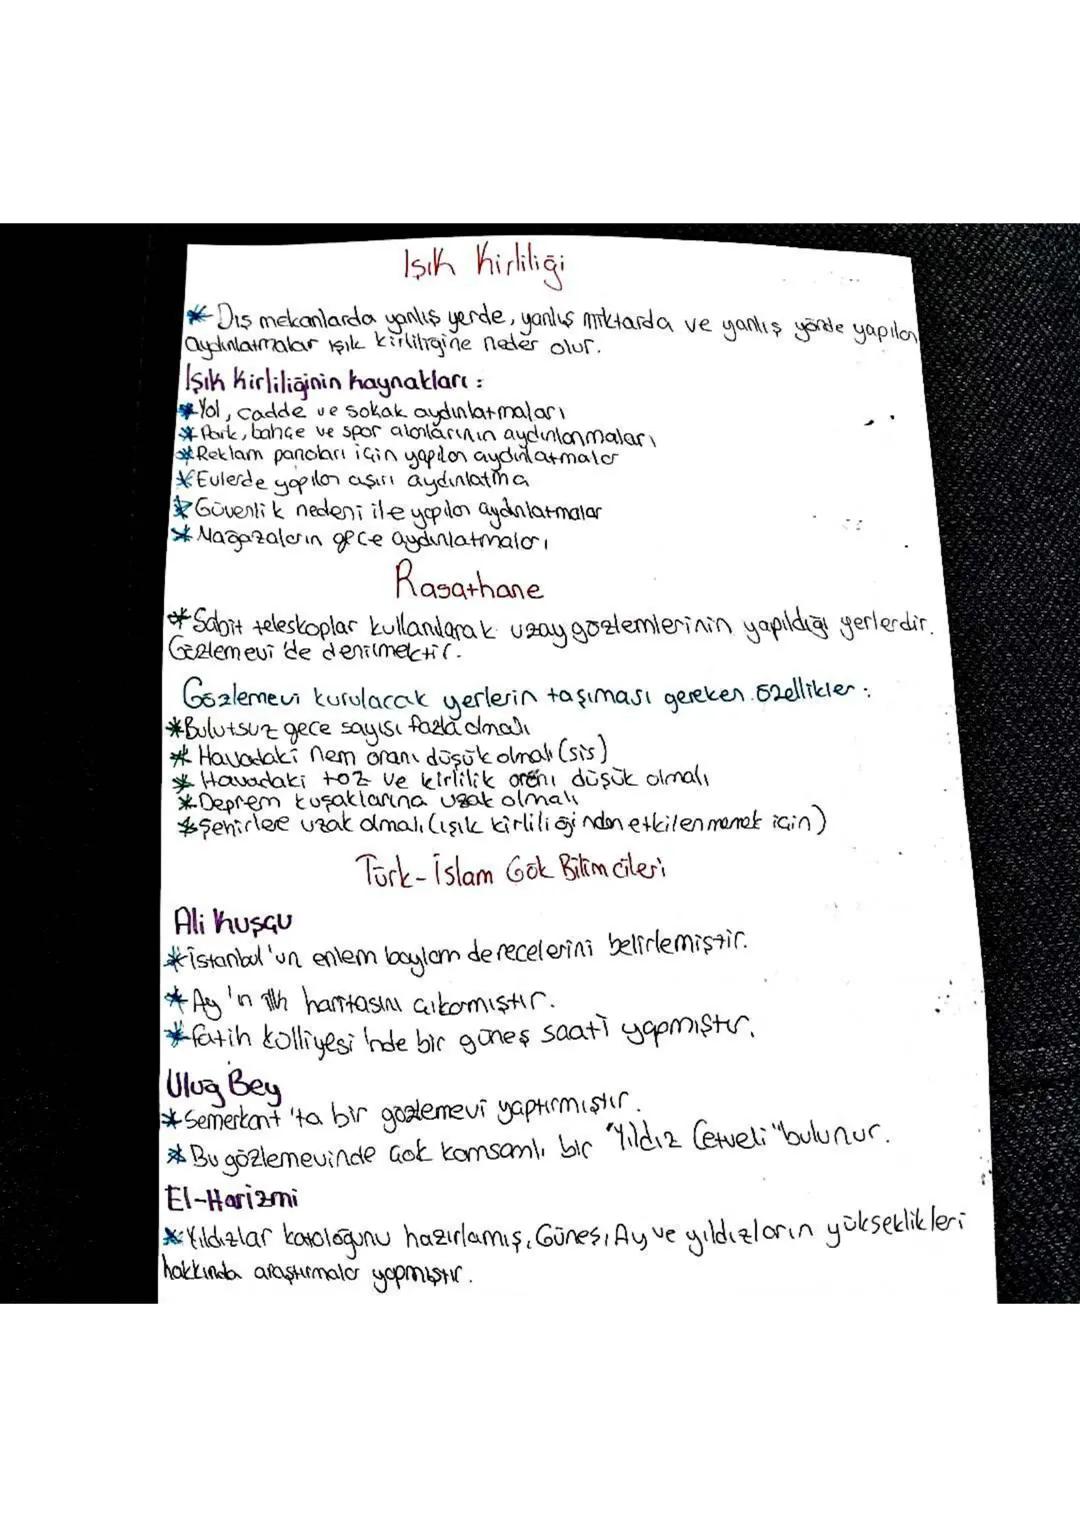 Işık Kirliliği
* Dış mekanlarda yanlış yerde, yanlış miktarda ve yanlış yönde yapılan
aydınlatmalar ışık kirliliğine neder olur.
Işık Kirliliğinin kaynakları :
* Yol, cadde ve sokak aydınlatmaları
* Park, bahçe ve spor alanlarının aydınlanmaları
* Reklam panoları için yapılan aydınlatmalar
* Evlerde yapılan aşırı aydınlatma
* Güvenlik nedeni ile yapılan aydınlatmalar
* Mağazaların gece aydınlatmaları
Rasathane
* Sabit teleskoplar kullanılarak uzay gözlemlerinin yapıldığı yerlerdir.
Gözlemevi 'de denilmektir.
Gözlemevi kurulacak yerlerin taşıması gereken özellikler :
* Bulutsuz gece sayısı fazla olmalı
* Havadaki nem oranı düşük olmalı (sis)
* Havadaki toz ve kirlilik oranı düşük olmalı
* Deprem kuşaklarına uzak olmalı
* Şehirlere uzak olmalı (ışık kirliliğinden etkilenmemek için)
Türk-İslam Gök Bilimcileri
Ali Kuşçu
* İstanbul'un enlem boylam derecelerini belirlemiştir.
* Ay'ın ilk haritasını çıkarmıştır.
* Fatih Külliyesi'nde bir güneş saati yapmıştır.
Uluğ Bey
* Semerkant'ta bir gözlemevi yaptırmıştır.
* Bu gözlemevinde çok kamsamlı bir "Yıldız Cetveli" bulunur.
El-Harizmi
* Yıldızlar kataloğunu hazırlamış, Güneş, Ay ve yıldızların yükseklikleri
hakkında araştırmalar yapmıştır.